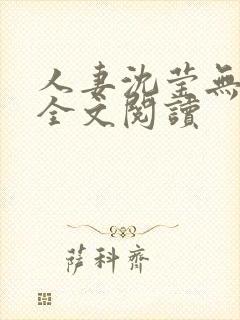 人妻沈莹無
全文閱讀
萨科齊